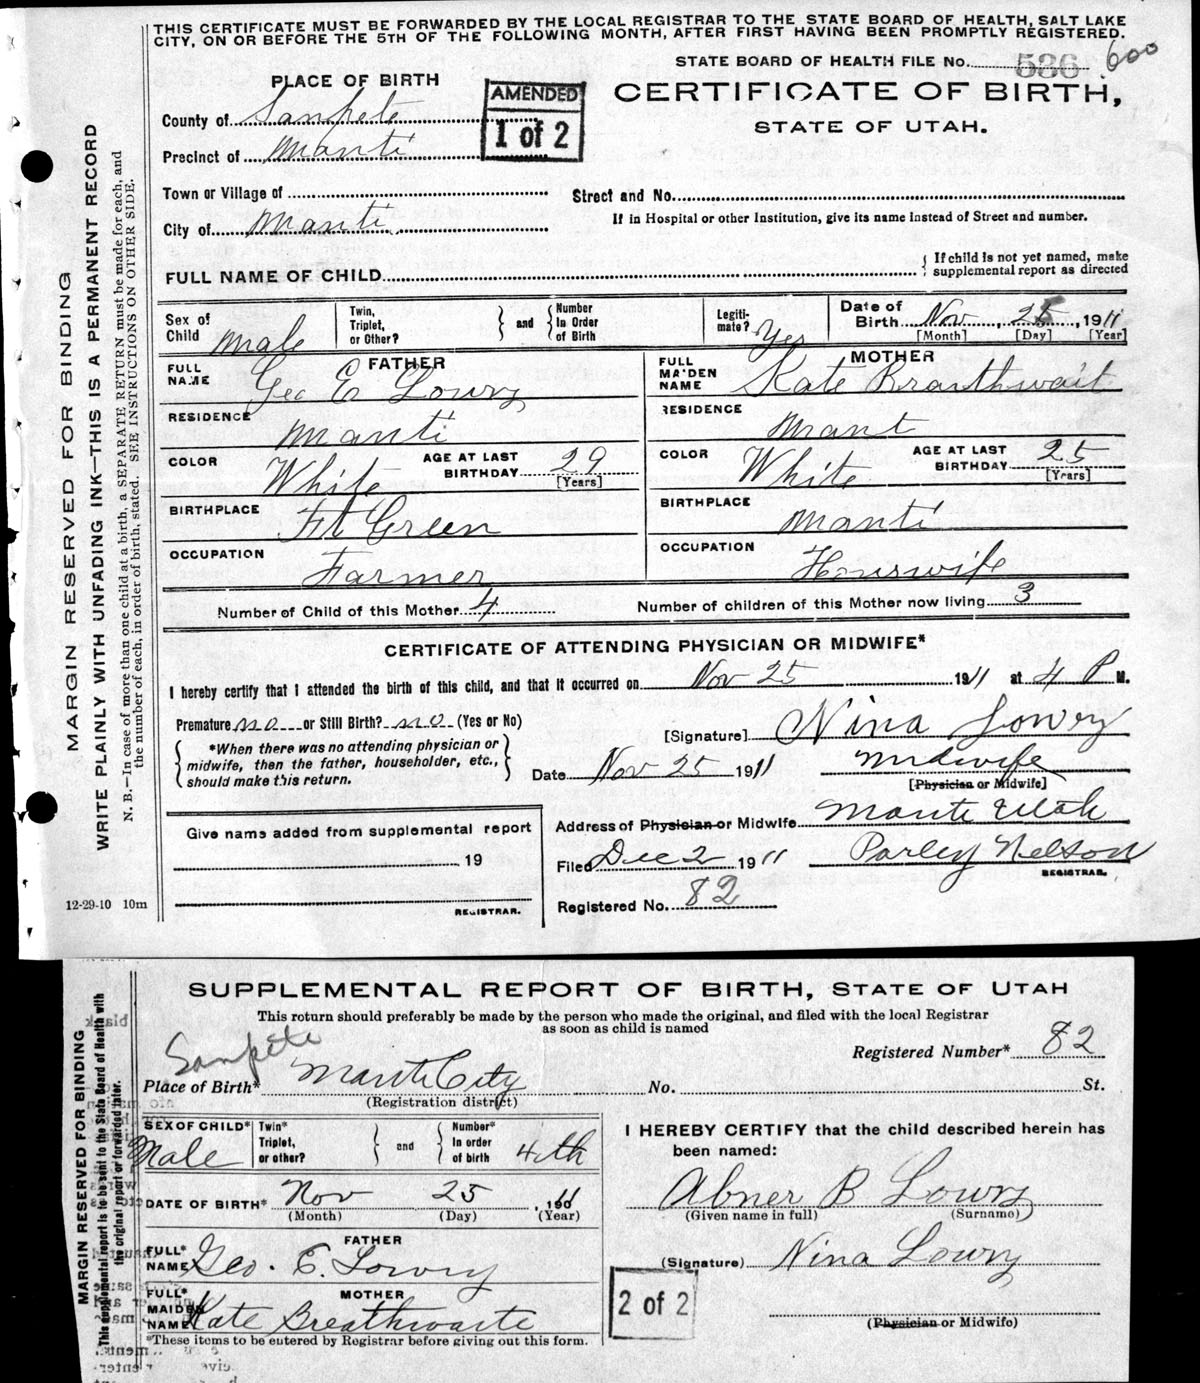 THIS CERTIFICATE MUST BE FORWARDED BY THE LOCAL REGISTRAR TO THE STATE BOARD OF HEALTH, SALT LAKE
CITY, ON OR BEFORE THE 5TH OF THE FOLLOWING MONTH, AFTER FIRST HAVING BEEN PROMPTLY REGISTERED.
STATE BOARD OF HEALTH FILE No. 536 600
PLACE OF BIRTH
AMENDED
1 of 2
CERTIFICATE OF BIRTH,
STATE OF UTAH.
County of Sanpete
Precinct of Manti
Town or Village of
Street and No.
City of Manti
If in Hospital or other Institution, give its name instead of Street and number.
FULL NAME OF CHILD
{ If child is not yet named, make
supplemental report as directed
Sex of Child Male
Twin, Triplet, or Other?
and
Number In Order of Birth
Legiti-mate? Yes
Date of Birth Nov, 25, 1911
[Month] [Day] [Year]
FATHER
FULL NAME Geo E Lowry
MOTHER
FULL MAIDEN NAME Kate Braithwait
RESIDENCE Manti
RESIDENCE Mant
COLOR White AGE AT LAST BIRTHDAY 29 [Years]
COLOR White AGE AT LAST BIRTHDAY 25 [Years]
BIRTHPLACE Ft Green
BIRTHPLACE Manti
OCCUPATION Farmer
OCCUPATION Houswife
Number of Child of this Mother 4
Number of children of this Mother now living 3
CERTIFICATE OF ATTENDING PHYSICIAN OR MIDWIFE*
I hereby certify that I attended the birth of this child, and that it occurred on Nov 25 1911 at 4 P M.
Premature no or Still Birth? no (Yes or No)
[Signature] Nina Lowry
*When there was no attending physician or
midwife, then the father, householder, etc.,
should make this return.
Date Nov 25 1911
Midwife
[Physician or Midwife]
Give name added from supplemental report
19
REGISTRAR.
Address of Physician or Midwife Manti Utah
Filed Dec 2 1911 Parley Nelson
REGISTRAR.
Registered No. 82
12-29-10 10m
MARGIN RESERVED FOR BINDING
WRITE PLAINLY WITH UNFADING INK—THIS IS A PERMANENT RECORD
N. B.—In case of more than one child at a birth, a SEPARATE RETURN must be made for each, and
the number of each, in order of birth, stated. SEE INSTRUCTIONS ON OTHER SIDE.
SUPPLEMENTAL REPORT OF BIRTH, STATE OF UTAH
This return should preferably be made by the person who made the original, and filed with the local Registrar
as soon as child is named
Sanpete
Registered Number* 82
Place of Birth* Manti City No. St.
(Registration district)
SEX OF CHILD* Male
Twin* Triplet, or other?
and
Number* In order of birth 4th
DATE OF BIRTH* Nov 25, 1911
(Month) (Day) (Year)
FATHER
FULL* NAME Geo. E. Lowry
MOTHER
FULL* MAIDEN NAME Kate Breathwaite
*These items to be entered by Registrar before giving out this form.
I HEREBY CERTIFY that the child described herein has
been named:
Abner B Lowry
(Given name in full) (Surname)
(Signature) Nina Lowry
2 of 2
(Physician or Midwife)
MARGIN RESERVED FOR BINDING
This supplemental report is to be sent to the State Board of Health with
the original report or forwarded later.